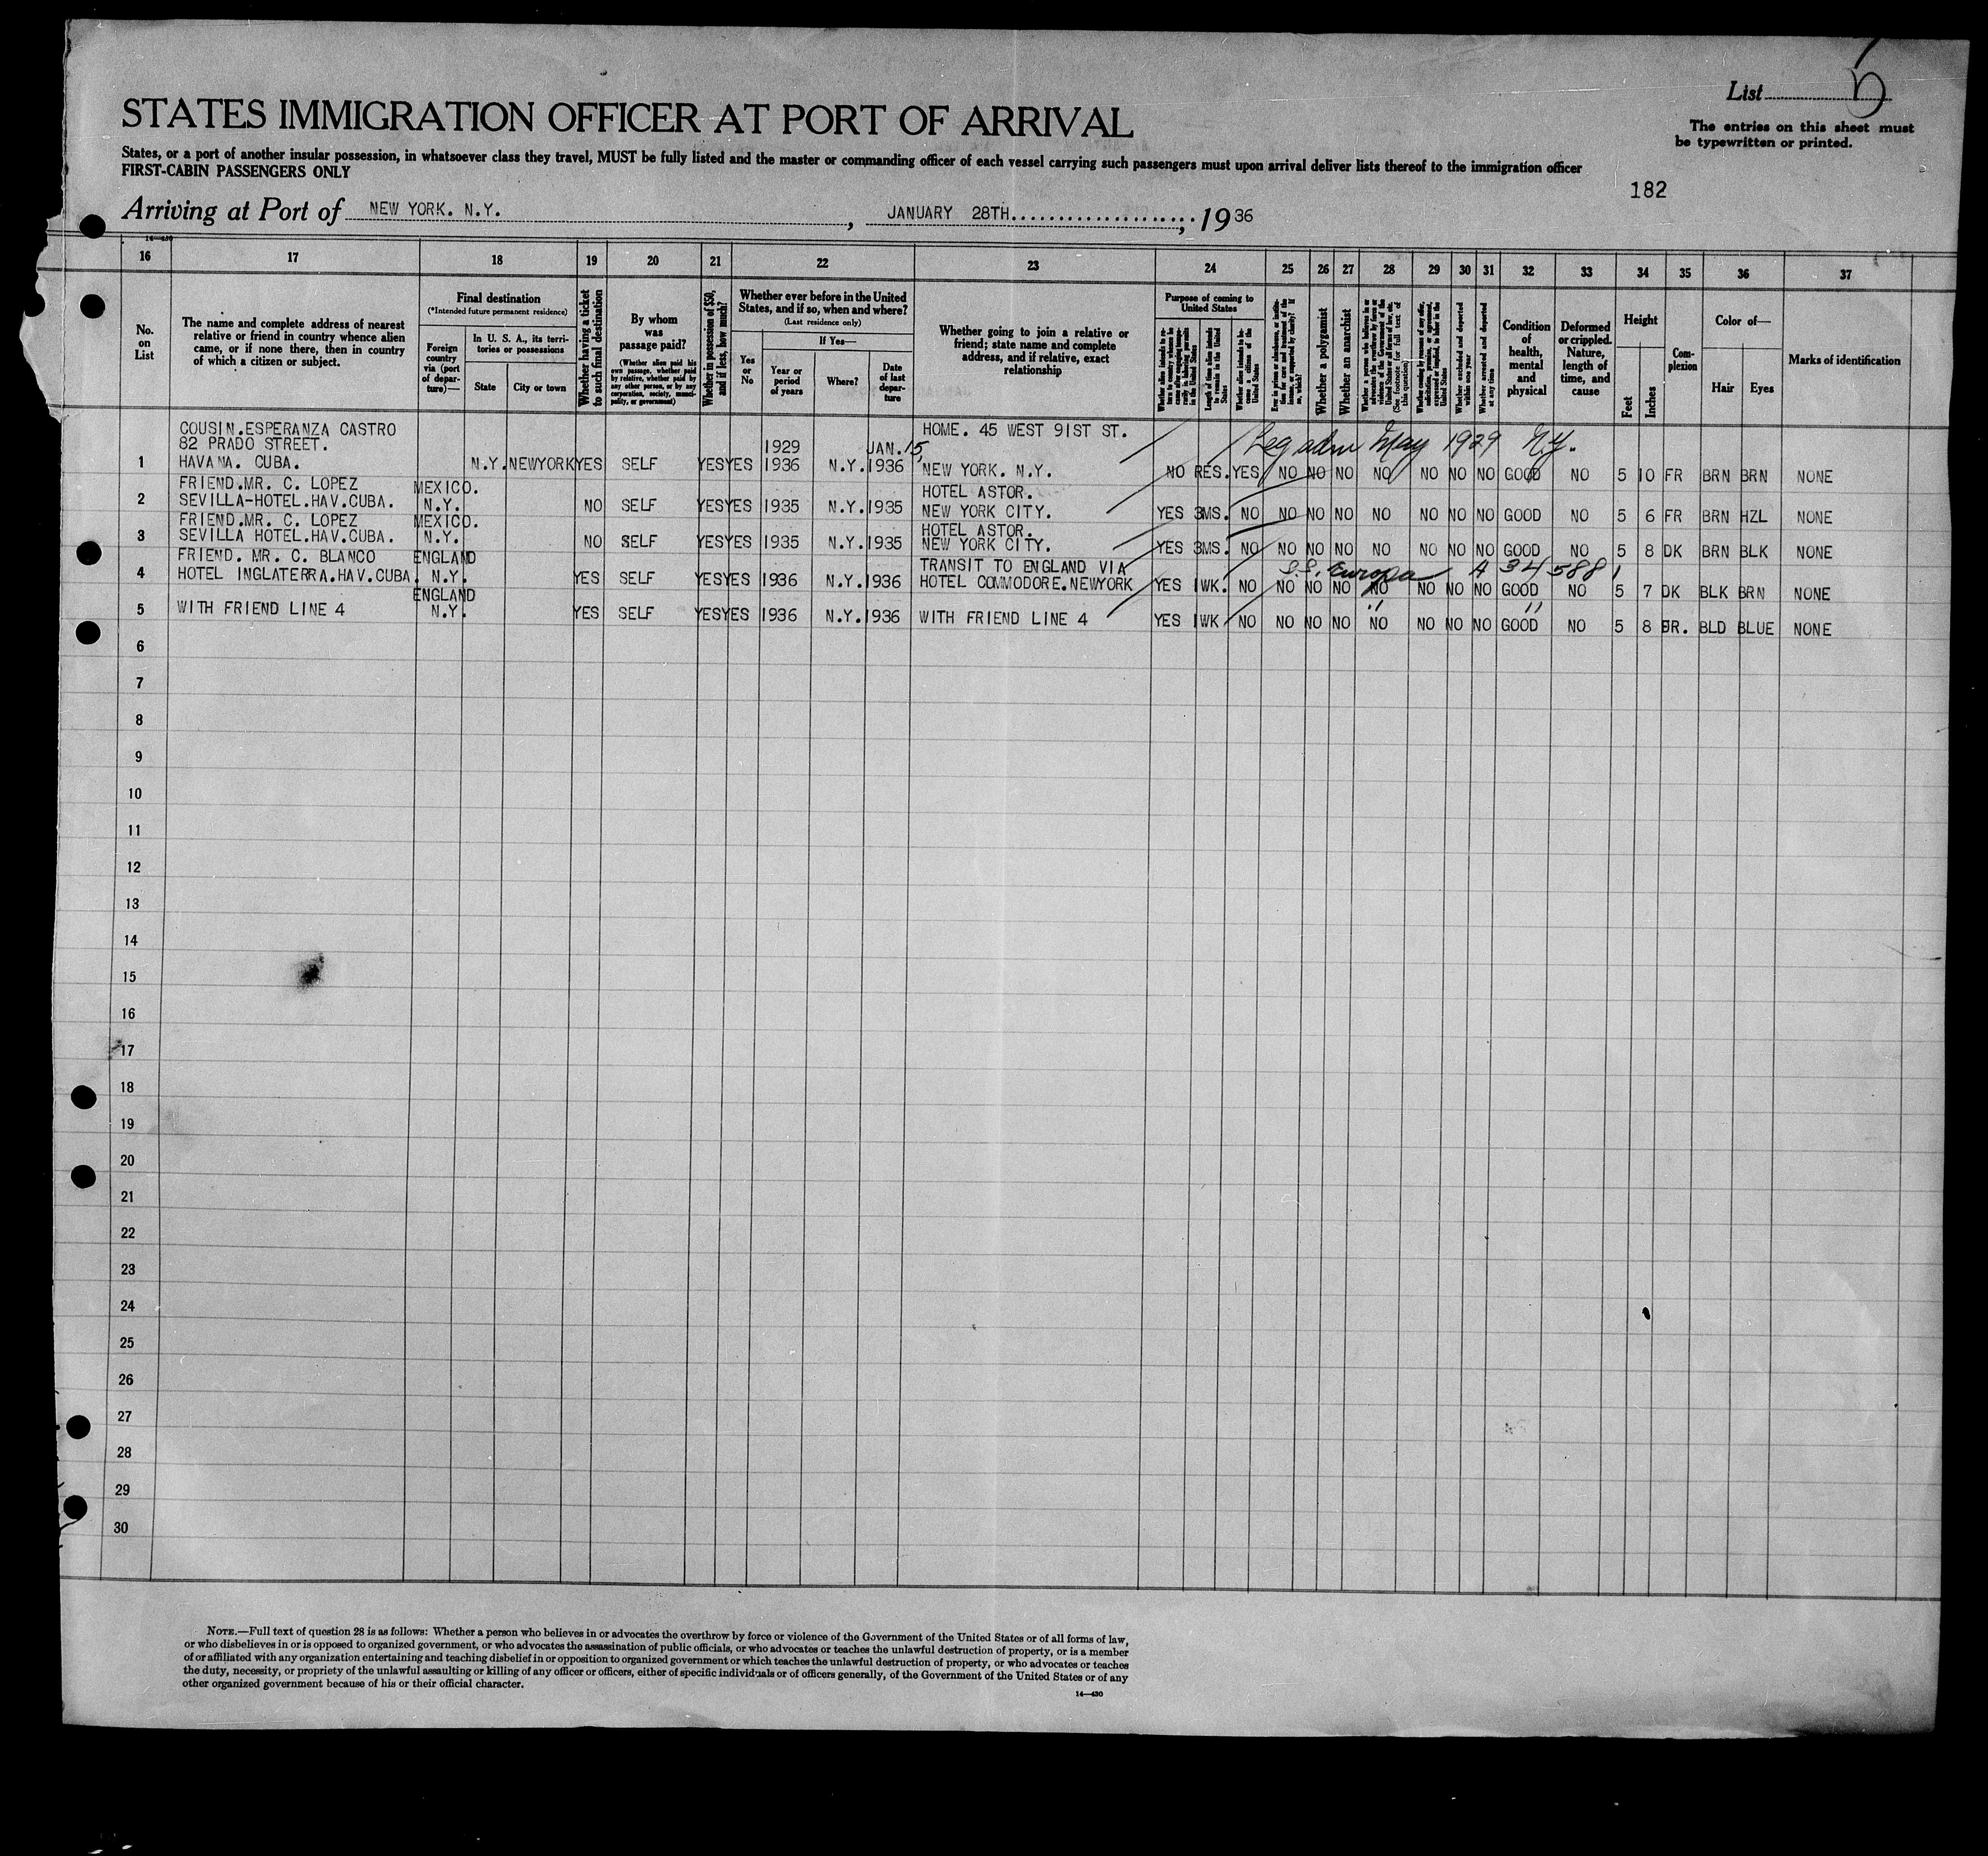 List 5
STATES IMMIGRATION OFFICER AT PORT OF ARRIVAL
The entries on this sheet must
be typewritten or printed.
States, or a port of another insular possession, in whatsoever class they travel, MUST be fully listed and the master or commanding officer of each vessel carrying such passengers must upon arrival deliver lists thereof to the immigration officer
FIRST-CABIN PASSENGERS ONLY
182
Arriving at Port of NEW YORK. N.Y. , JANUARY 28TH , 1936
14—430
16 17 18 19 20 21 22 23 24 25 26 27 28 29 30 31 32 33 34 35 36 37
No. on List
The name and complete address of nearest relative or friend in country whence alien came, or if none there, then in country of which a citizen or subject.
Final destination
(*Intended future permanent residence)
Foreign country via (port of departure)—
In U. S. A., its territories or possessions
State
City or town
Whether having a ticket to such final destination
By whom was passage paid?
(Whether alien paid his own passage, whether paid by relative, whether paid by any other person, or by any corporation, society, municipality, or government)
Whether in possession of $50, and if less, how much?
Whether ever before in the United States, and if so, when and where?
(Last residence only)
Yes or No
If Yes—
Year or period of years
Where?
Date of last departure
Whether going to join a relative or friend; state name and complete address, and if relative, exact relationship
Purpose of coming to United States
Whether alien intends to return to country whence he came after engaging temporarily in laboring pursuits in the United States
Length of time alien intends to remain in the United States
Whether alien intends to become a citizen of the United States
Ever in prison or almshouse, or institution for care and treatment of the insane, or supported by charity? If so, which?
Whether a polygamist
Whether an anarchist
Whether a person who believes in or advocates the overthrow by force or violence of the Government of the United States or all forms of law, etc. (See footnote for full text of this question)
Whether coming by reason of any offer, solicitation, promise, or agreement, expressed or implied, to labor in the United States
Whether excluded and deported within one year
Whether arrested and deported at any time
Condition of health, mental and physical
Deformed or crippled. Nature, length of time, and cause
Height
Feet
Inches
Complexion
Color of—
Hair
Eyes
Marks of identification
COUSIN.ESPERANZA CASTRO HOME. 45 WEST 91ST ST. Leg adm May 1929 N.Y.
82 PRADO STREET. 1929 JAN.15,
1 HAVANA. CUBA. N.Y. NEWYORK YES SELF YES YES 1936 N.Y. 1936 NEW YORK. N.Y. NO RES. YES NO NO NO NO NO NO NO GOOD NO 5 10 FR BRN BRN NONE
FRIEND.MR. C. LOPEZ MEXICO. HOTEL ASTOR.
2 SEVILLA-HOTEL.HAV.CUBA. N.Y. NO SELF YES YES 1935 N.Y. 1935 NEW YORK CITY. YES 3MS. NO NO NO NO NO NO NO NO GOOD NO 5 6 FR BRN HZL NONE
FRIEND.MR. C. LOPEZ MEXICO. HOTEL ASTOR.
3 SEVILLA HOTEL.HAV.CUBA. N.Y. NO SELF YES YES 1935 N.Y. 1935 NEW YORK CITY. YES 3MS. NO NO NO NO NO NO NO NO GOOD NO 5 8 DK BRN BLK NONE
FRIEND. MR. C. BLANCO ENGLAND TRANSIT TO ENGLAND VIA S.S. Europa A 34588
4 HOTEL INGLATERRA.HAV.CUBA. N.Y. YES SELF YES YES 1936 N.Y. 1936 HOTEL COMMODORE.NEWYORK YES 1WK. NO NO NO NO NO NO NO NO GOOD NO 5 7 DK BLK BRN NONE
ENGLAND " "
5 WITH FRIEND LINE 4 N.Y. YES SELF YES YES 1936 N.Y. 1936 WITH FRIEND LINE 4 YES 1WK NO NO NO NO NO NO NO NO GOOD NO 5 8 FR. BLD BLUE NONE
6
7
8
9
10
11
12
13
14
15
16
17
18
19
20
21
22
23
24
25
26
27
28
29
30
NOTE.—Full text of question 28 is as follows: Whether a person who believes in or advocates the overthrow by force or violence of the Government of the United States or of all forms of law,
or who disbelieves in or is opposed to organized government, or who advocates the assassination of public officials, or who advocates or teaches the unlawful destruction of property, or is a member
of or affiliated with any organization entertaining and teaching disbelief in or opposition to organized government or which teaches the unlawful destruction of property, or who advocates or teaches
the duty, necessity, or propriety of the unlawful assaulting or killing of any officer or officers, either of specific individuals or of officers generally, of the Government of the United States or of any
other organized government because of his or their official character.
14—430